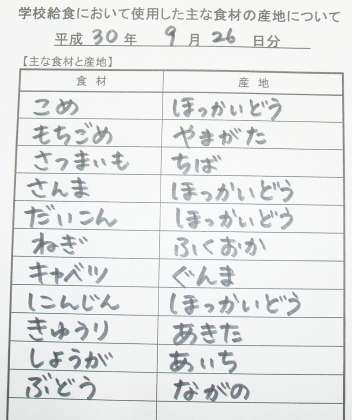 学校給食において使用した主な食材の産地について
平成 30 年 9 月 26 日分
【主な食材と産地】
食材 産地
こめ ほっかいどう
もちごめ やまがた
さつまいも ちば
さんま ほっかいどう
だいこん ほっかいどう
ねぎ ふくおか
キャベツ ぐんま
しこんにん ほっかいどう
きゅうり あきた
しょうが あいち
ぶどう ながの